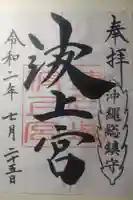 奉拝
沖縄総鎮守
波上宮
令和二年七月二十五日